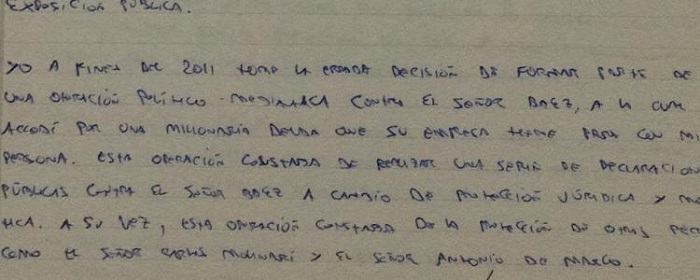 EXPOSICIÓN PÚBLICA.
YO A FINES DEL 2011 TOME LA ERRADA DECISIÓN DE FORMAR PARTE DE
UNA OPERACIÓN POLÍTICO-MEDIATICA CONTRA EL SEÑOR BAEZ, A LA CUAL
ACCEDÍ POR UNA MILLONARIA DEUDA QUE SU EMPRESA TIENE PARA CON MI
PERSONA. ESTA OPERACIÓN CONSTABA DE REALIZAR UNA SERIE DE DECLARACION
PÚBLICAS CONTRA EL SEÑOR BAEZ A CAMBIO DE PROTECCIÓN JURÍDICA Y
TICA. A SU VEZ, ESTA OPERACIÓN CONSTABA DE LA PROTECCIÓN DE OTRAS
COMO EL SEÑOR CARLOS MOLINARI Y EL SEÑOR ANTONIO DE MARCO.